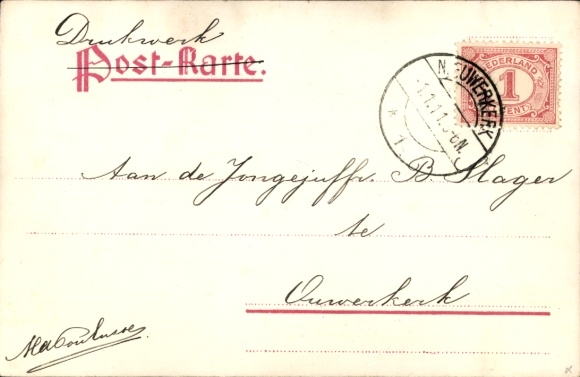 Drukwerk
Post-Karte.
NIEUWERKERK
1.1.11. N.
* 1 *
NEDERLAND
1
CENT
Aan de Jongejuffr. B. Slager
te
Ouwerkerk